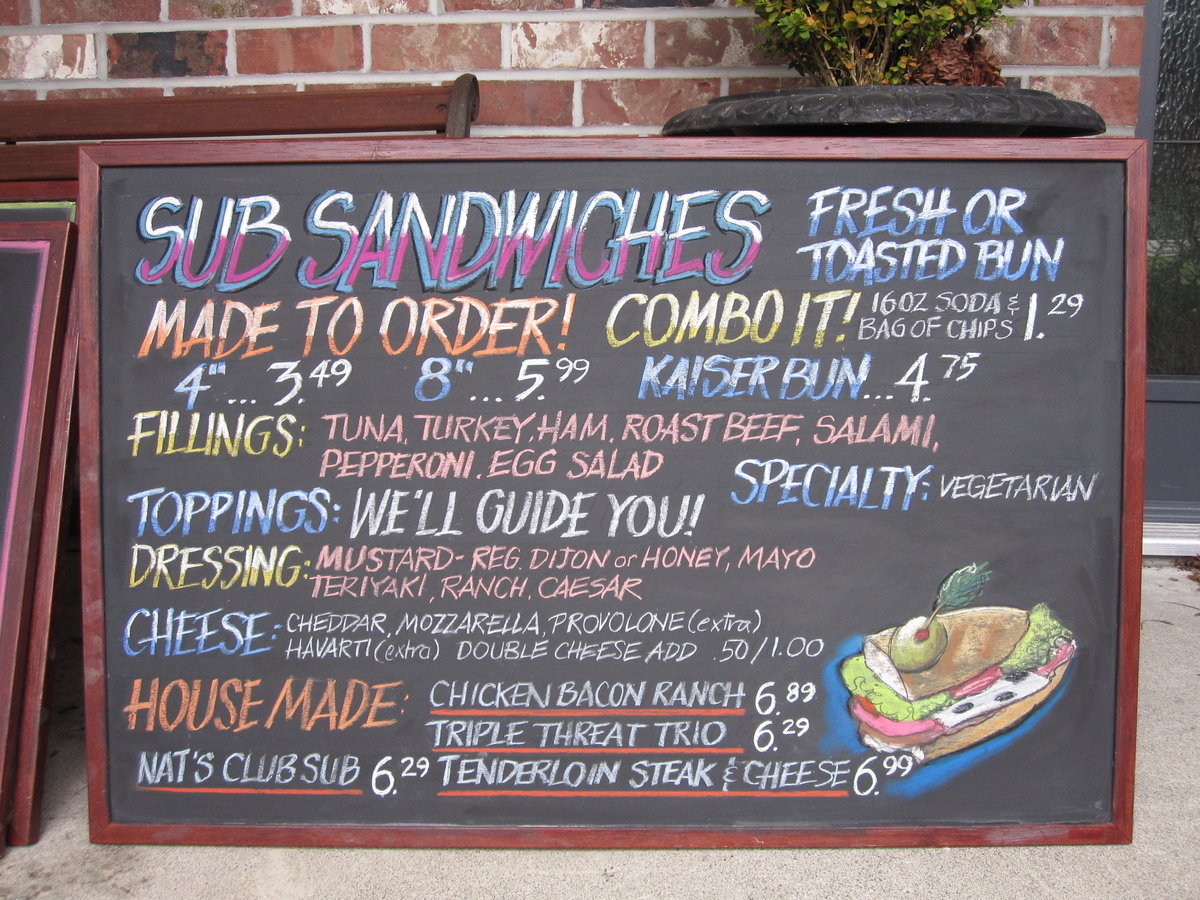 SUB SANDWICHES
FRESH OR
TOASTED BUN
MADE TO ORDER! COMBO IT! 16OZ SODA &
BAG OF CHIPS 1.29
4"... 3.49 8"... 5.99 KAISER BUN... 4.75
FILLINGS: TUNA, TURKEY, HAM, ROAST BEEF, SALAMI,
PEPPERONI, EGG SALAD
SPECIALTY: VEGETARIAN
TOPPINGS: WE'LL GUIDE YOU!
DRESSING: MUSTARD - REG. DIJON or HONEY, MAYO
TERIYAKI, RANCH, CAESAR
CHEESE: CHEDDAR, MOZZARELLA, PROVOLONE (extra)
HAVARTI (extra) DOUBLE CHEESE ADD .50/1.00
HOUSE MADE: CHICKEN BACON RANCH 6.89
TRIPLE THREAT TRIO 6.29
NAT'S CLUB SUB 6.29 TENDERLOIN STEAK & CHEESE 6.99